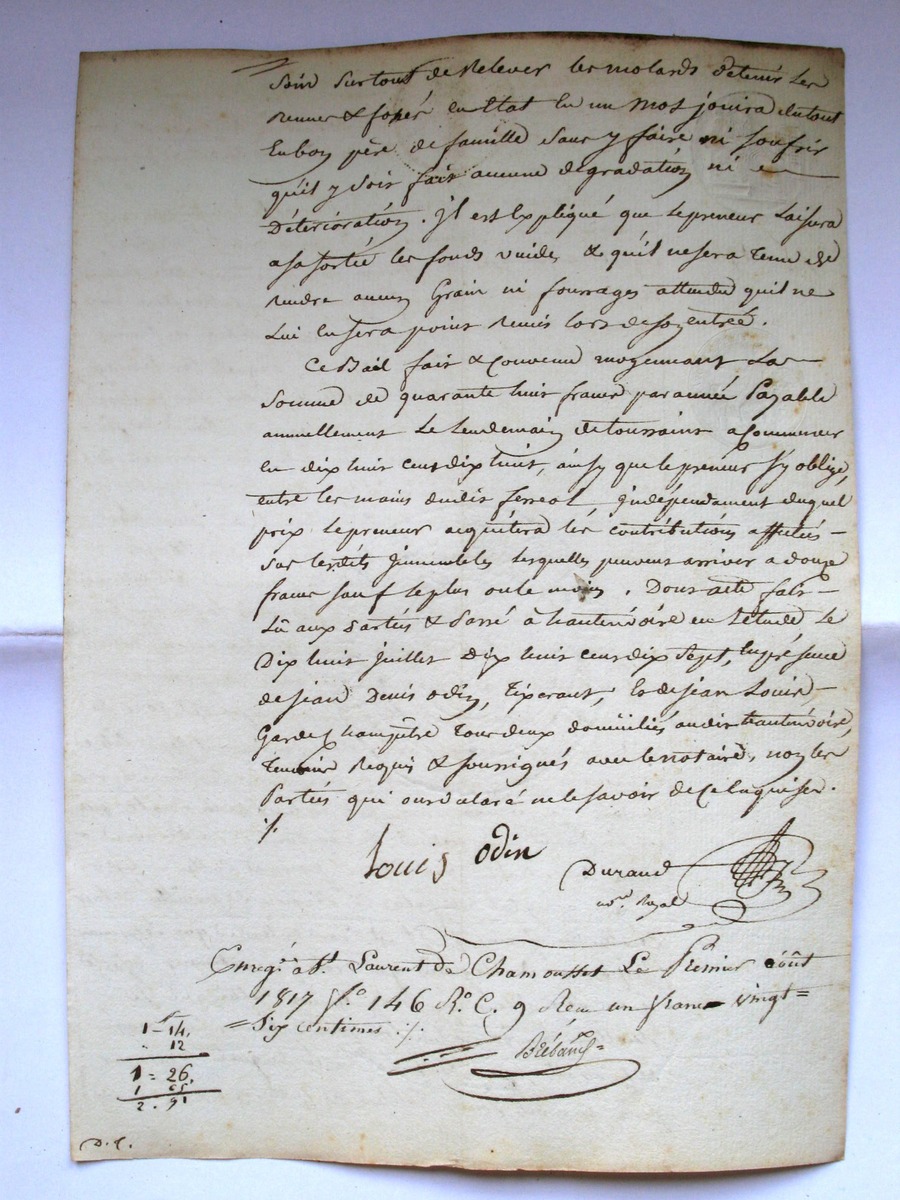 soin surtout de Relever les molards detenir les
en Etat En un Mot jouira dutout
Enbon père de famille sans y faire ni soufrir
qu'il y soit fait aucune degradation ni
Déterioration. Jl est Expliqué que lepreneur Laissera
asa sortié les fonds vuides & qu'il nesera tenu de
rendre aucun Grain ni fourrages attendu quil ne
Lui ensera point remis lors desonentreé.
Ce Bail fait & Convenu moyennant La
Somme de quarante huit francs par anneé Payable
annuellement Le Lendemain detoussaint a Commencer
En dix huit cent dix huit, ainsy que le preneur s'y oblige,
entre les mains dudit ferreol jndépendament duquel
prix lepreneur acquitera les contributions affecteés
sur lesdits jmmeubles lesquelles peuvent arriver adouze
francs sauf leplus oule moins. Dont acte fait
Lû aux Parties & Passé à hauterivoire en Letude Le
Dix huit juillet Dix huit cent dix sept, En présence
de jean Denis odin, tixerant, & de jean Louis
Garde champêtre tous deux domiciliés audit hauterivoire,
temoins Requis & soussignés avec le notaire, non les
Parties qui ont déclaré ne le savoir de Ce Enquises.
Louis odin
Durand
no.re Royal
Enreg.é a S.t Laurent de Chamousset Le Premier août
1817 f.o 146 R.o C. 9 Reçu un franc vingt=
=six centimes
1 - 14.
12
1 = 26.
1 65
2. 91
D. C.